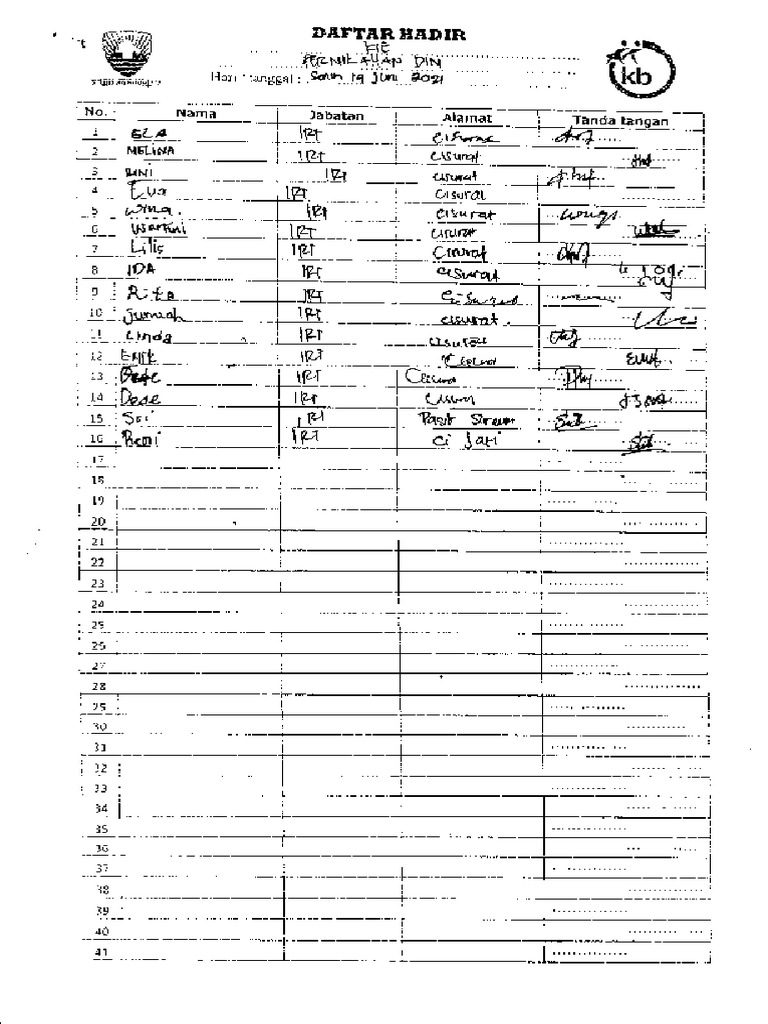 DAFTAR HADIR
KIE
PERNIKAHAN DINI
Hari/Tanggal : Senin 14 Juni 2021
kb
No. Nama Jabatan Alamat Tanda tangan
1 ELA IRT Cisurat
2 MELINA IRT Cisurat
3 RINI IRT Cisurat
4 Eua IRT Cisurat
5 Wina. IRT Cisurat
6 Wartini IRT Cisurat
7 Lilis IRT Cisurat
8 IDA IRT Cisurat
9 Rita IRT Cisurat
10 Jumiah IRT Cisurat.
11 Linda IRT Cisurat
12 Enik IRT Cisurat
13 Dede IRT Cisurat
14 Dede IRT Cisurat
15 Sri IRT Pasir
16 Reni IRT Ci Jati
17
18
19
20
21
22
23
24
25
26
27
28
29
30
31
32
33
34
35
36
37
38
39
40
41